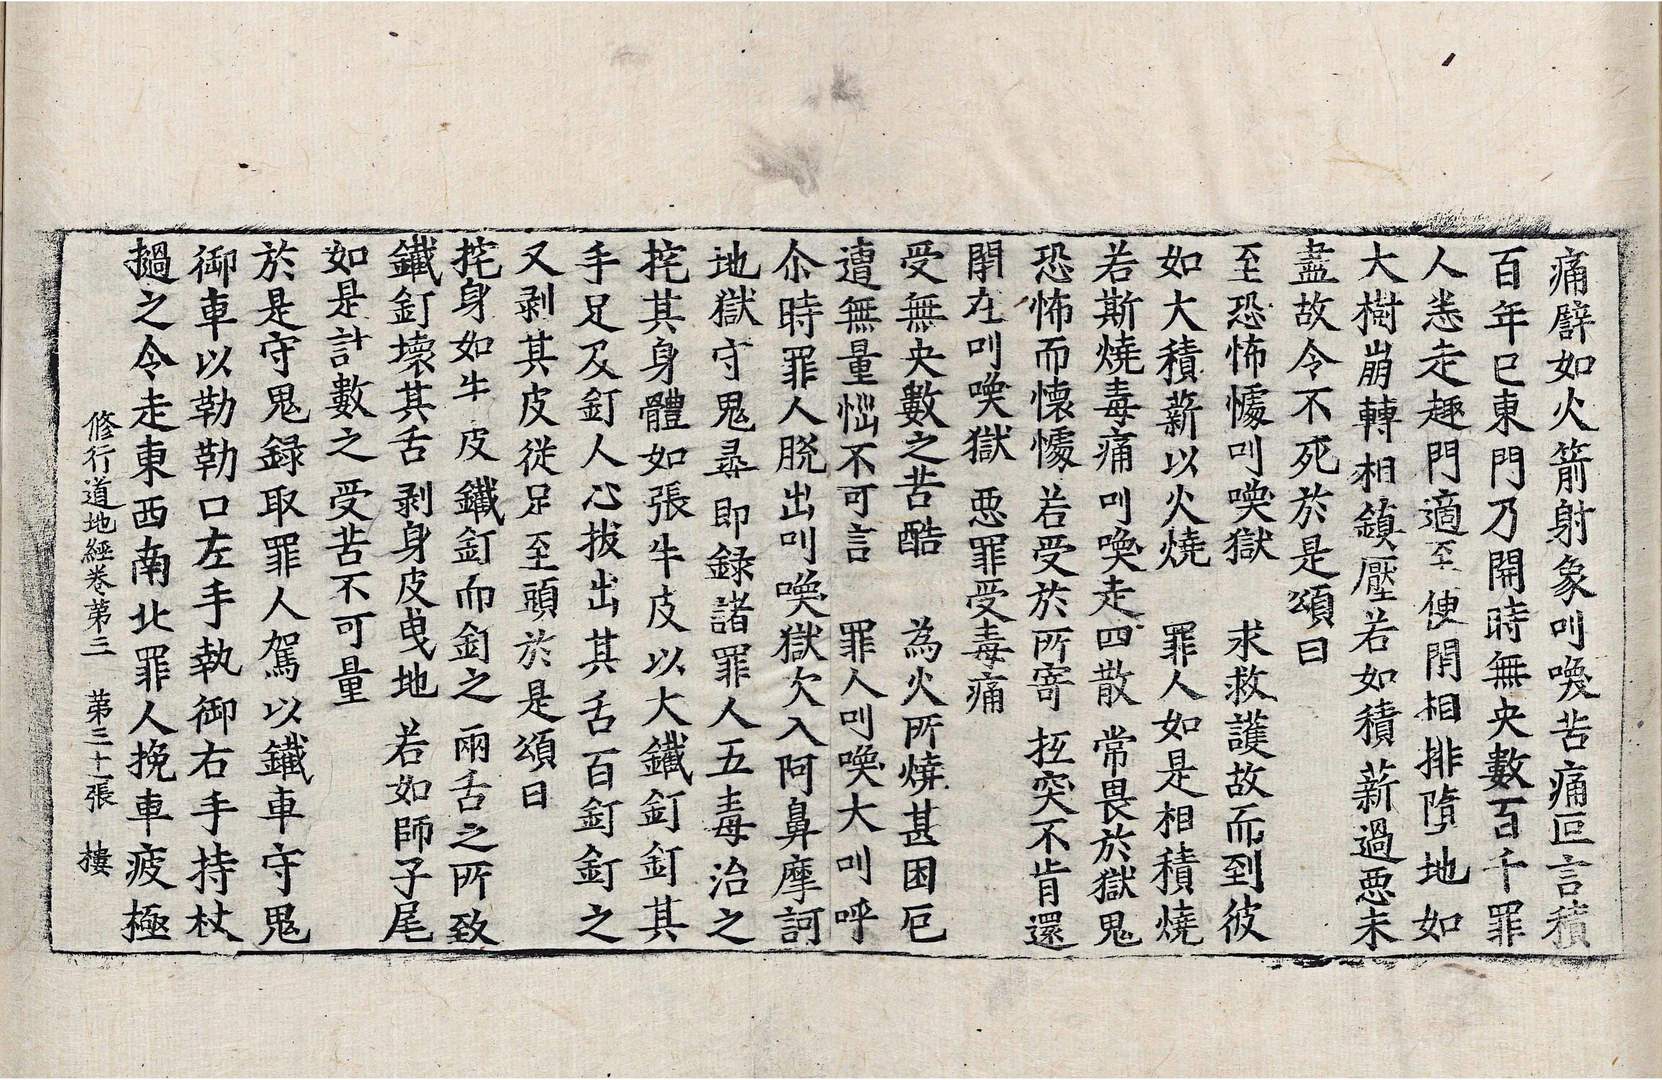 痛譬如火箭射象叫喚苦痛叵言積
百年已東門乃開時無央數百千罪
人悉走趣門適至便閉相排墮地如
大樹崩轉相鎮壓若如積薪過惡未
盡故令不死於是頌曰
至恐怖懅叫喚獄　求救護故而到彼
如大積薪以火燒　罪人如是相積燒
若斯燒毒痛叫喚走四散　常畏於獄鬼
恐怖而懷懅　若受於所寄　抂突不肯還
閉在叫喚獄　惡罪受毒痛
受無央數之苦酷　為火所燒甚困厄
遭無量惱不可言　罪人叫喚大叫呼
尒時罪人脫出叫喚獄次入阿鼻摩訶
地獄守鬼尋即録諸罪人五毒治之
挓其身體如張牛皮以大鐵釘釘其
手足及釘人心拔出其舌百釘釘之
又剥其皮從足至頭於是頌曰
挓身如牛皮　鐵釘而釘之　兩舌之所致
鐵釘壞其舌　剥身皮曳地　若如師子尾
如是計數之　受苦不可量
於是守鬼録取罪人駕以鐵車守鬼
御車以勒勒口左手執御右手持杖
撾之令走東西南北罪人挽車疲極
修行道地經卷第三　第三十張　摟